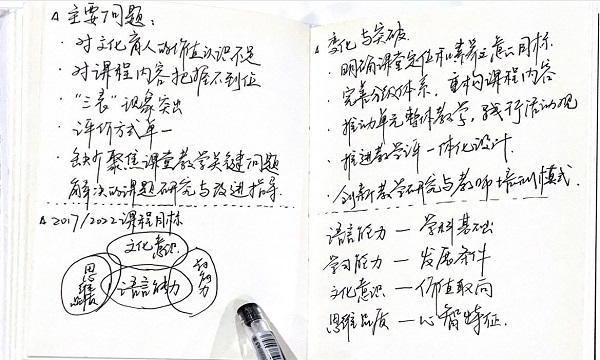 △主要问题：
·对文化育人的价值认识不足
·对课程内容把握不到位
·“三表”现象突出
·评价方式单一
·缺少聚焦课堂教学关键问题
解决的课题研究与改进指导.
△2017/2022课程目标
文化意识
思维品质
语言能力
学习能力
△变化与突破.
·明确课堂定位和素养立意目标.
·完善分级体系，重构课程内容
·推动单元整体教学，践行活动观
·推进教学评一体化设计.
·创新教学研究与教师培训模式.
语言能力—学科基础
学习能力—发展条件
文化意识—价值取向
思维品质—心智特征.